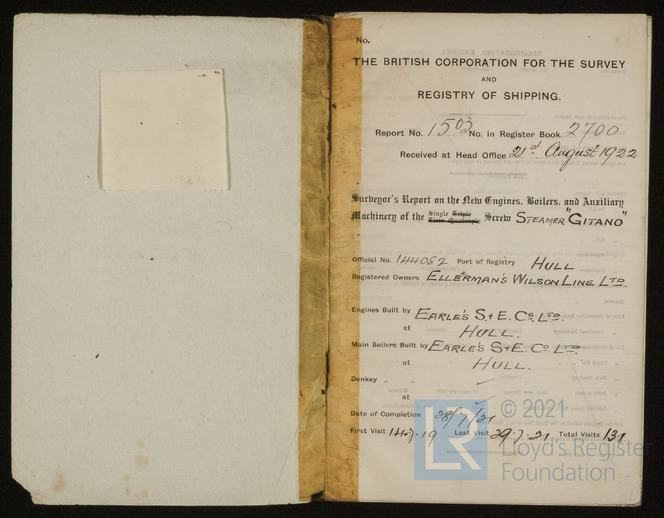 No.
THE BRITISH CORPORATION FOR THE SURVEY
AND
REGISTRY OF SHIPPING.
Report No. 1503 No. in Register Book 2700
Received at Head Office 21st August 1922
Surveyor's Report on the New Engines, Boilers, and Auxiliary
Machinery of the Single Triple Twin Quadruple Screw STEAMER "GITANO"
Official No. 144082 Port of Registry HULL
Registered Owners ELLERMAN'S WILSON LINE LTD.
Engines Built by EARLE'S S. & E. CO. LTD.
at HULL.
Main Boilers Built by EARLE'S S & E. CO. LTD.
at HULL.
Donkey " "
at
Date of Completion 28/7/21
First Visit 14.7.19 Last Visit 29.7.21 Total Visits 131
LR © 2021
Lloyd's Register
Foundation